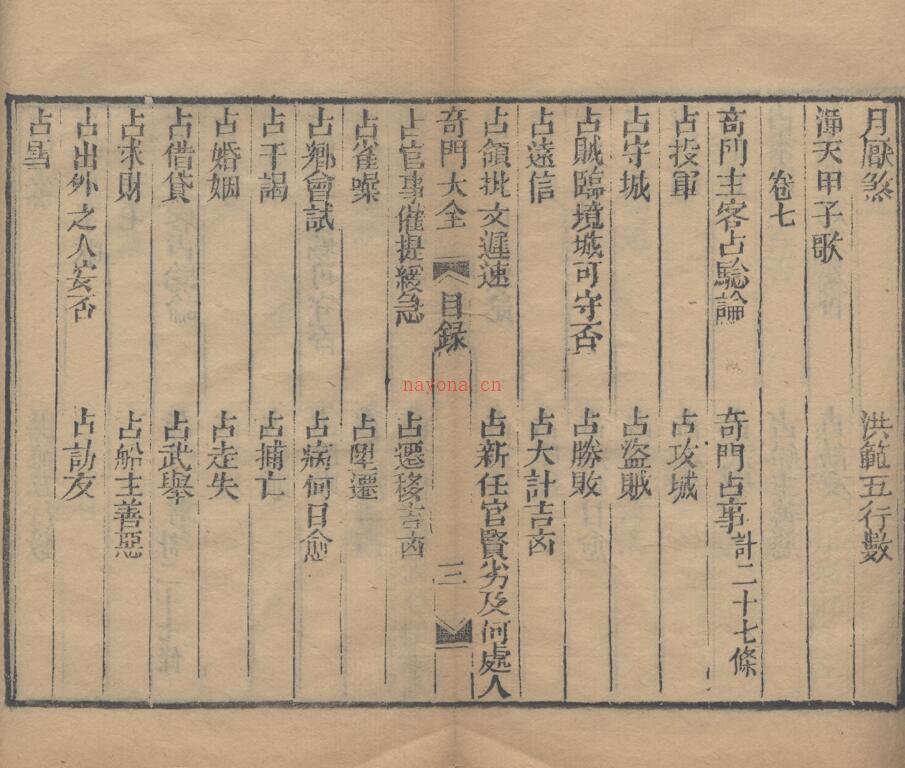 月厭煞　洪範五行數
渾天甲子歌
卷七
奇門主客占驗論　奇門占事計二十七條
占投軍　占攻城
占守城　占盜賊
占賊臨境城可守否　占勝敗
占遠信　占大計吉凶
占領批文遲速　占新任官賢劣及何處人
奇門大全　目録　三
占官事催提緩急　占遷移吉凶
占雀噪　占陞遷
占鄉會試　占病何日愈
占干謁　占捕亡
占婚姻　占走失
占借貸　占武舉
占求財　占船主善惡
占出外之人安否　占訪友
占雪
nayona.cn